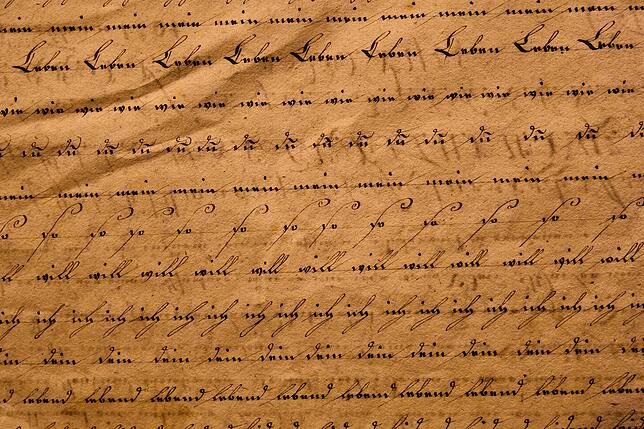 mein mein mein mein mein mein mein mein mein mein mein mein
Leben Leben Leben Leben Leben Leben Leben Leben Leben
wir wir wir wir wir wir wir wir wir wir wir wir wir wir wir wir
du du du du du du du du du du du du du du du
mein mein mein mein mein mein mein mein mein
so so so so so so so so so so so so so
will will will will will will will will will will will will
ich ich ich ich ich ich ich ich ich ich ich ich ich ich ich ich ich
dein dein dein dein dein dein dein dein dein dein dein
lebend lebend lebend lebend lebend lebend lebend lebend lebend lebend